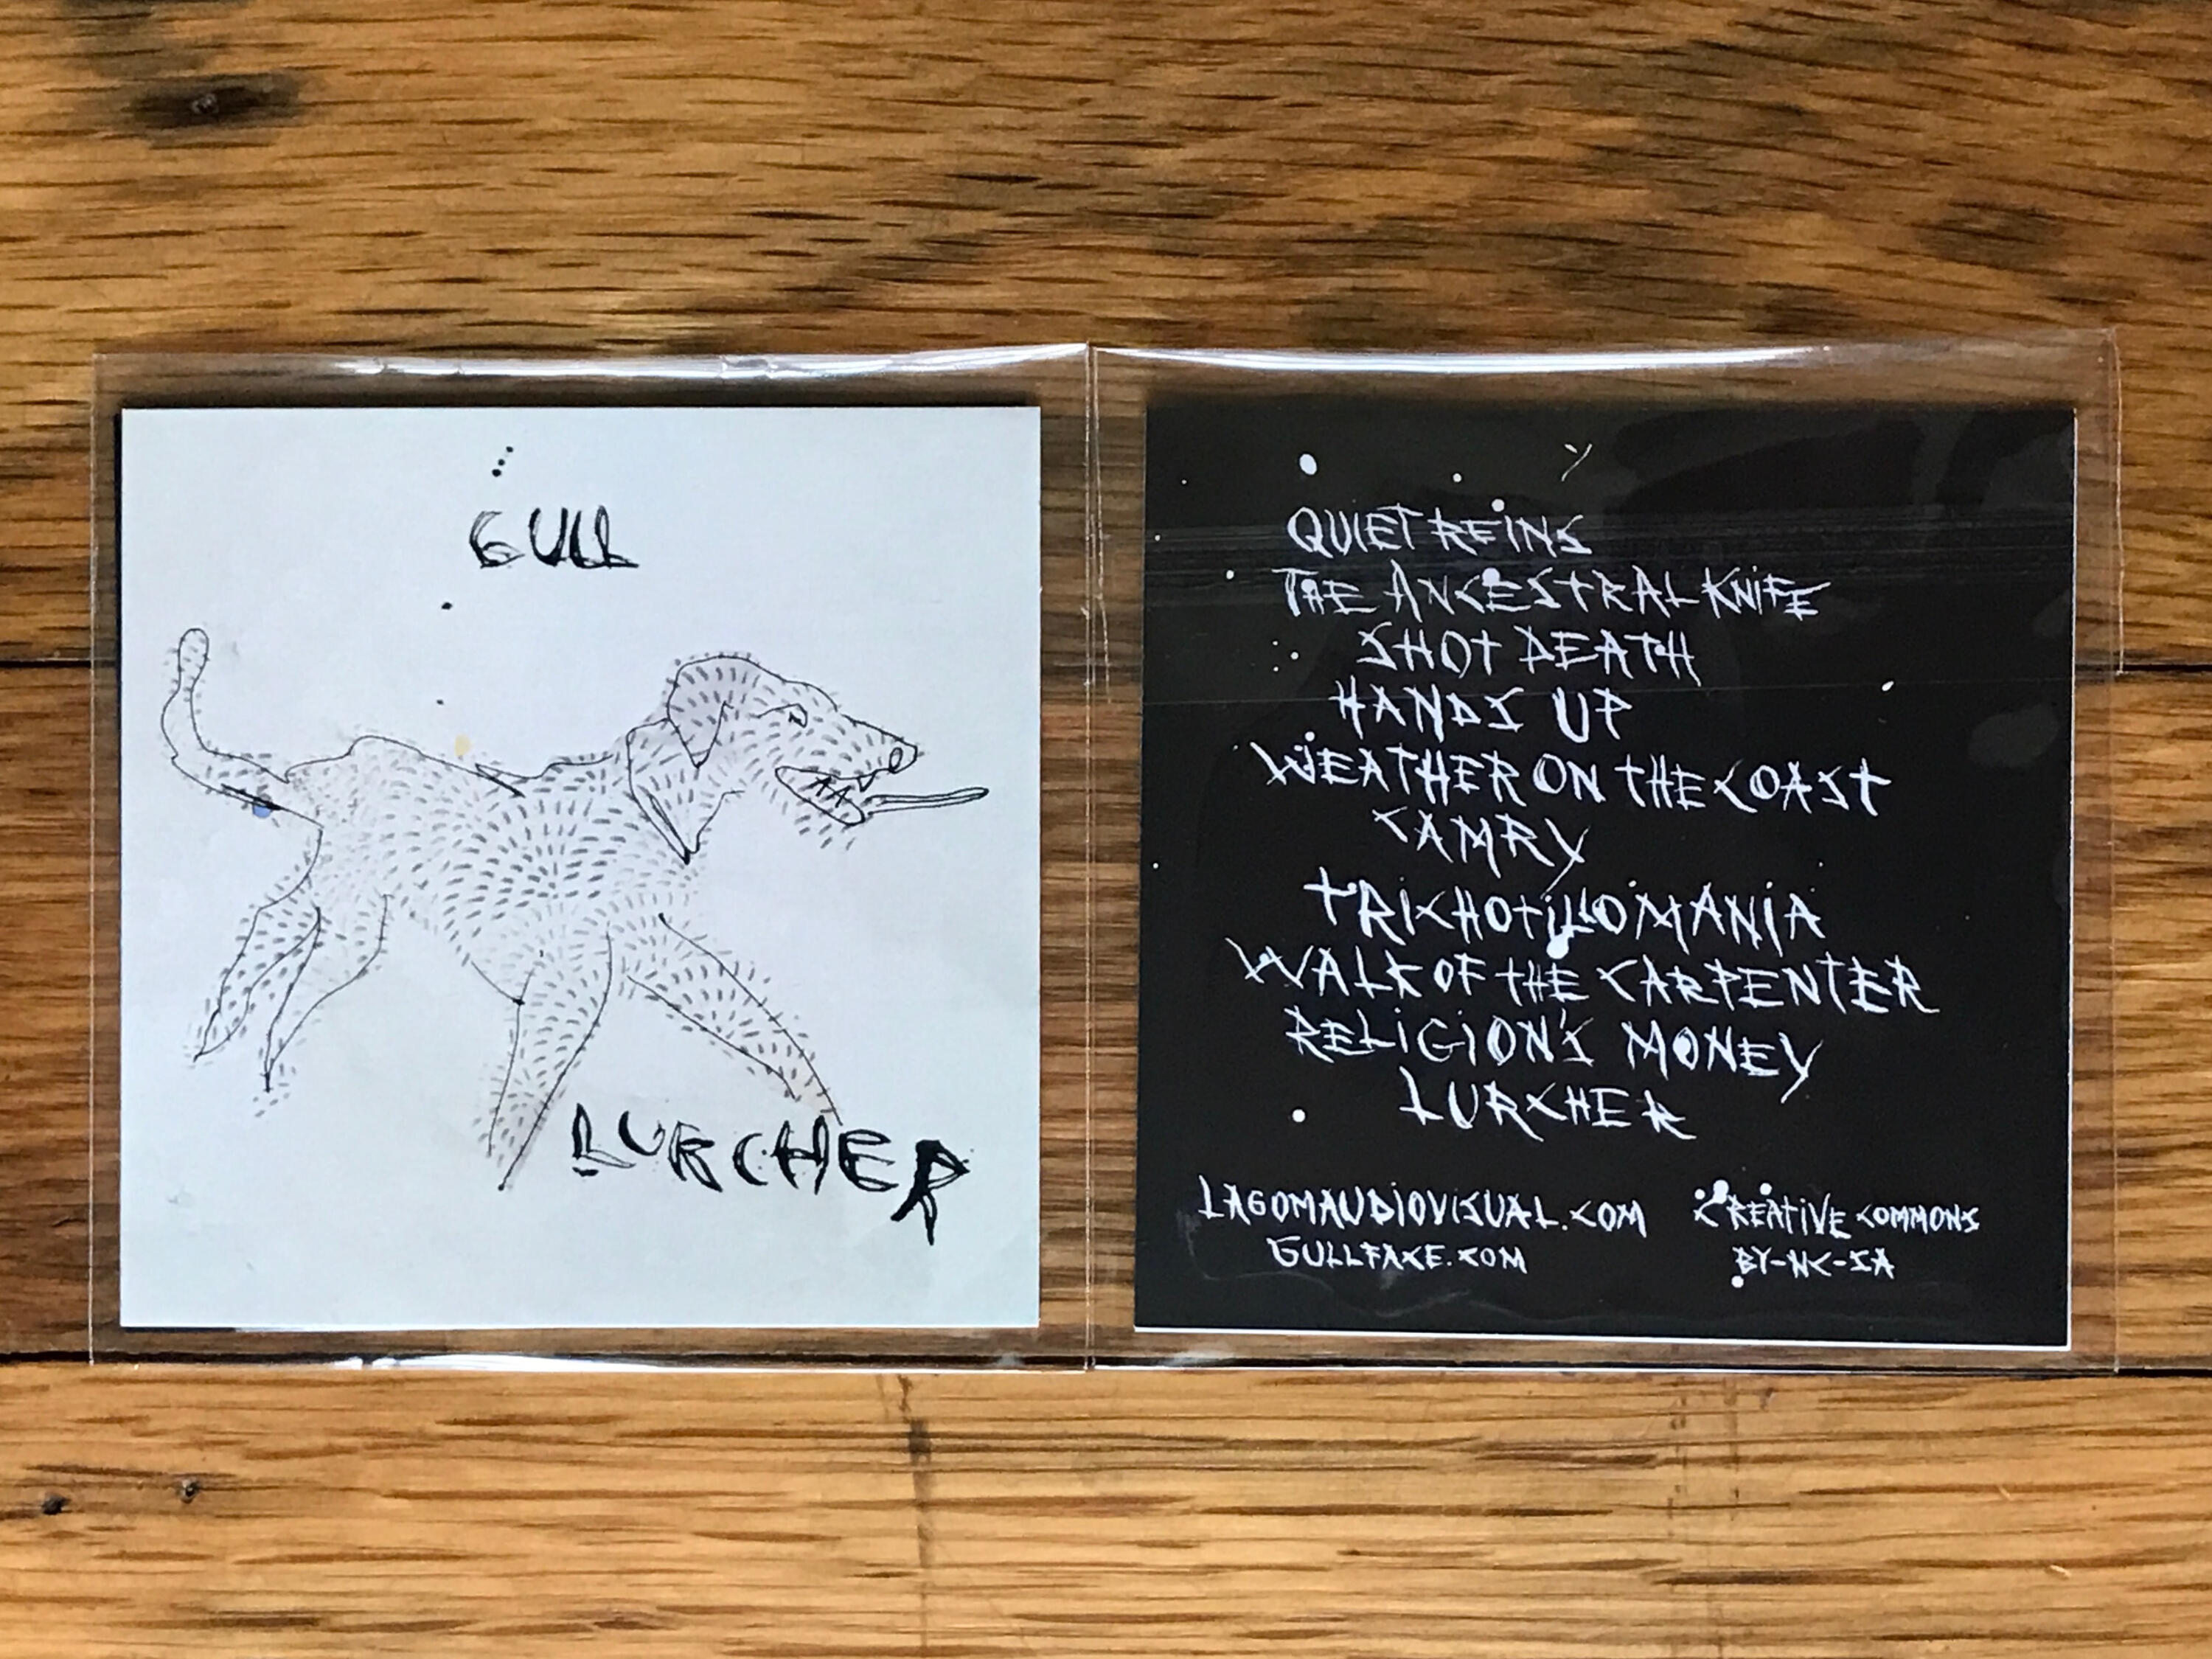 GULL
LURCHER
QUIET REINS
THE ANCESTRAL KNIFE
SHOT DEATH
HANDS UP
WEATHER ON THE COAST
CAMRY
TRICHOTILLOMANIA
WALK OF THE CARPENTER
RELIGION'S MONEY
LURCHER
LAGOMAUDIOVISUAL.COM
GULLFACE.COM
CREATIVE COMMONS
BY-NC-SA